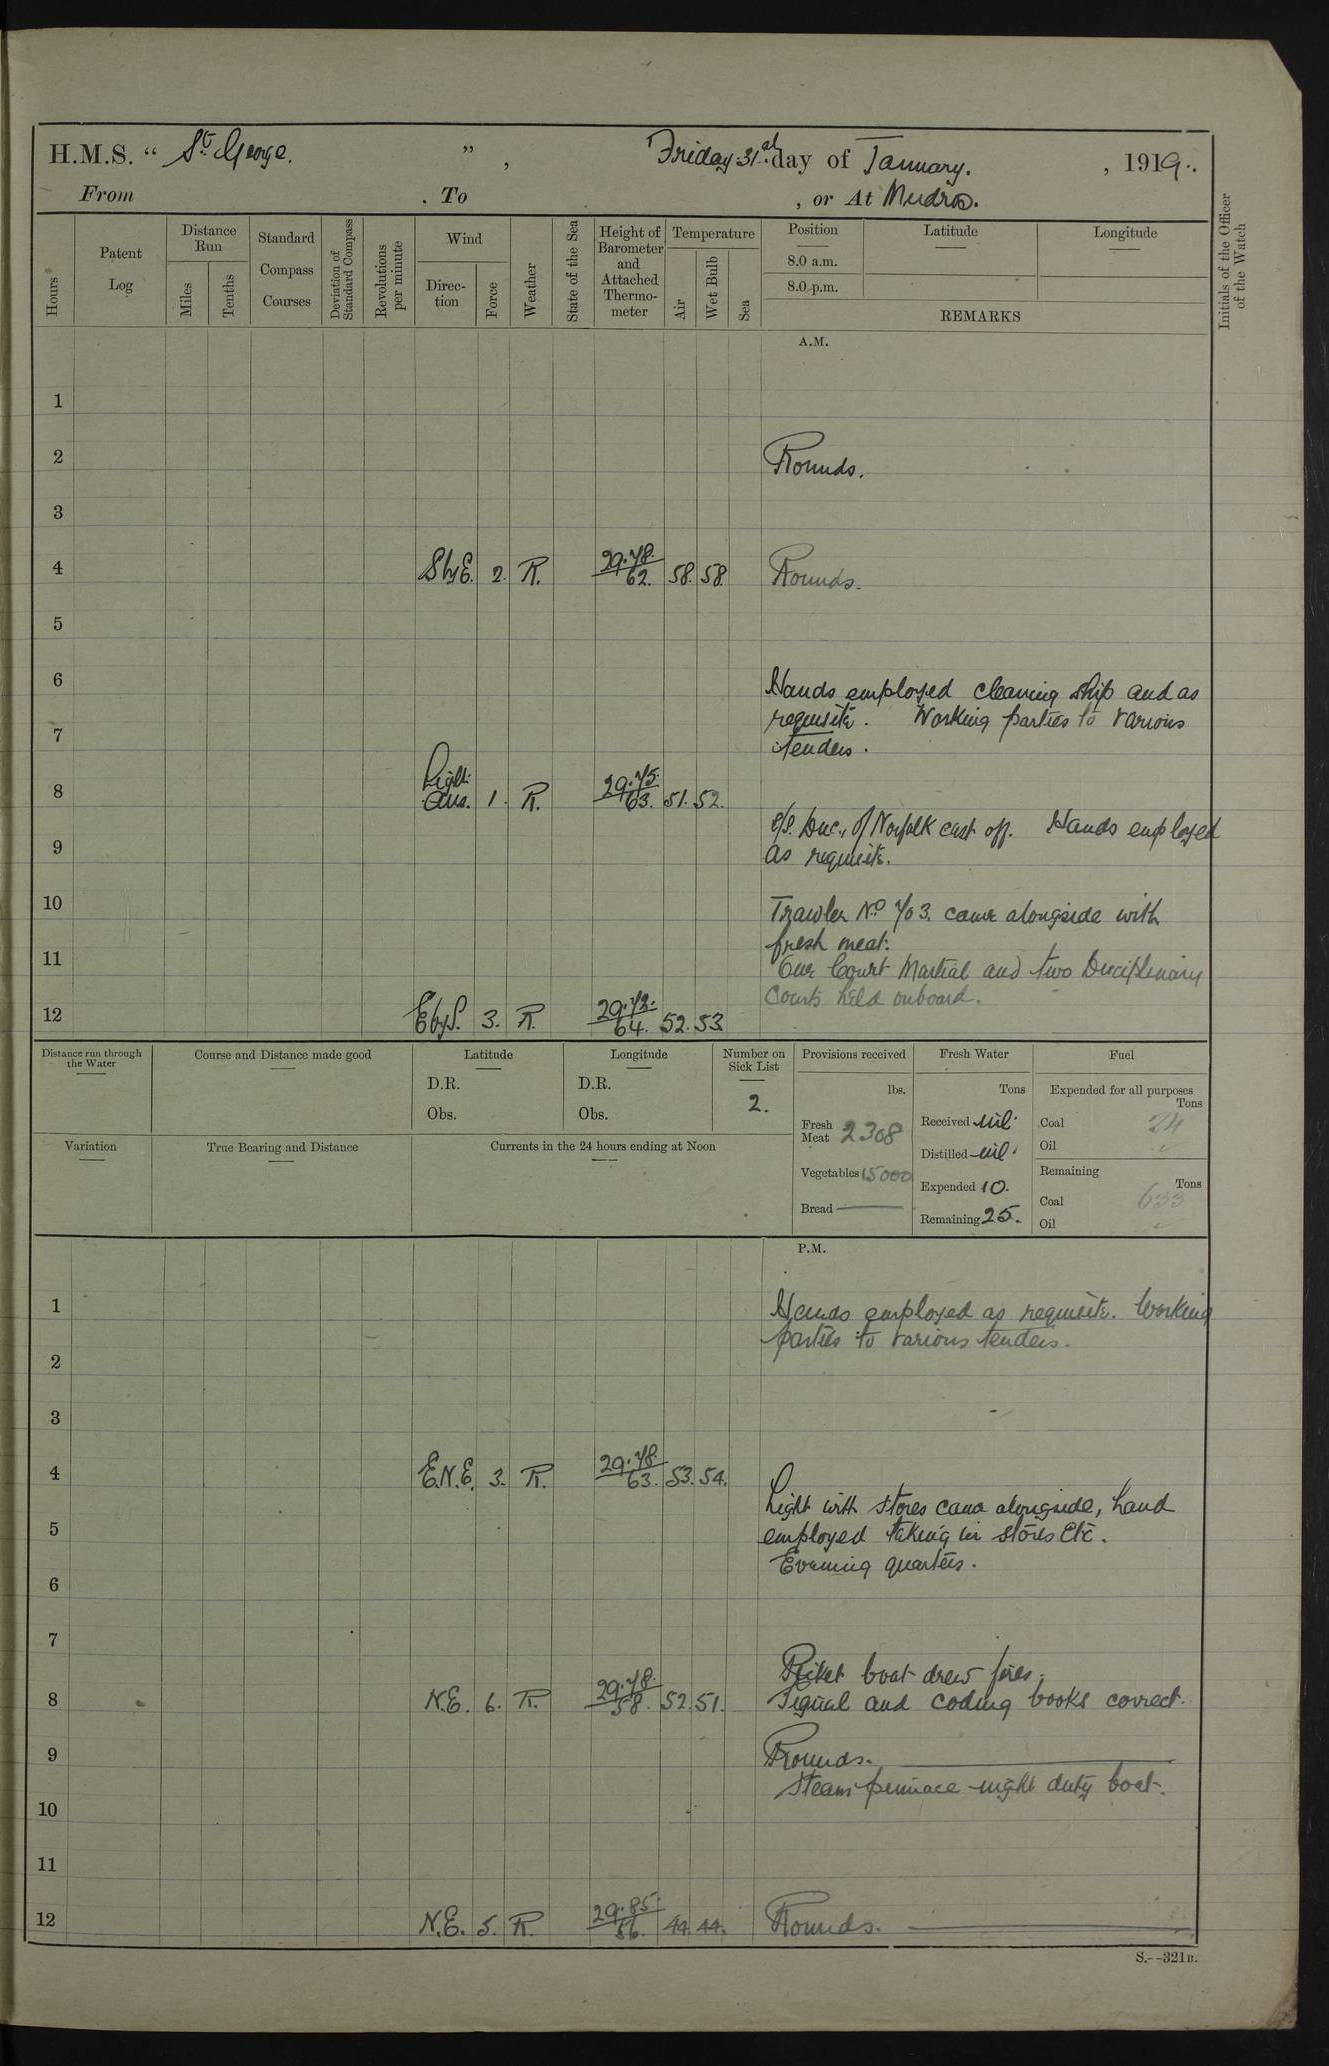 H.M.S. “ St. George. ” , Friday 31st day of January. , 1919.
From . To , or At Mudros.
Hours
Patent Log
Distance Run
Miles
Tenths
Standard Compass Courses
Deviation of Standard Compass
Revolutions per minute
Wind
Direction
Force
Weather
State of the Sea
Height of Barometer and Attached Thermometer
Temperature
Air
Wet Bulb
Sea
Position
8.0 a.m.
8.0 p.m.
Latitude
Longitude
REMARKS
Initials of the Officer of the Watch
A.M.
1
2 Rounds.
3
4 S by E. 2. R. 29.78. 62. 58. 58 Rounds.
5
6 Hands employed cleaning ship and as
requisite. Working parties to various
7 tenders.
8 Light airs. 1. R. 29.75. 63. 51. 52.
of Norfolk cast off. Hands employed
9 as requisite.
10 Trawler No 703. came alongside with
fresh meat.
11 One Court Martial and two Disciplinary
Courts held onboard.
12 E by S. 3. R. 29.72. 64. 52. 53
Distance run through the Water
Course and Distance made good
Latitude
D.R.
Obs.
Longitude
D.R.
Obs.
Number on Sick List
2.
Provisions received
lbs.
Fresh Meat 2308
Vegetables 15000
Bread
Fresh Water
Tons
Received nil.
Distilled nil.
Expended 10.
Remaining 25.
Fuel
Expended for all purposes
Tons
Coal 24
Oil
Remaining
Tons
Coal 633
Oil
Variation
True Bearing and Distance
Currents in the 24 hours ending at Noon
P.M.
1 Hands employed as requisite. Working
parties to various tenders.
2
3
4 E.N.E. 3. R. 29.78. 63. 53. 54.
Light with stores came alongside, hand
5 employed taking in stores etc.
Evening quarters.
6
7
Picket boat drew fires.
8 N.E. 6. R. 29.78. 58. 52. 51. Signal and coding books correct.
9 Rounds.
Steam pinnace night duty boat.
10
11
12 N.E. 5. R. 29.85. 56. 44. 44. Rounds.
S.--321B.